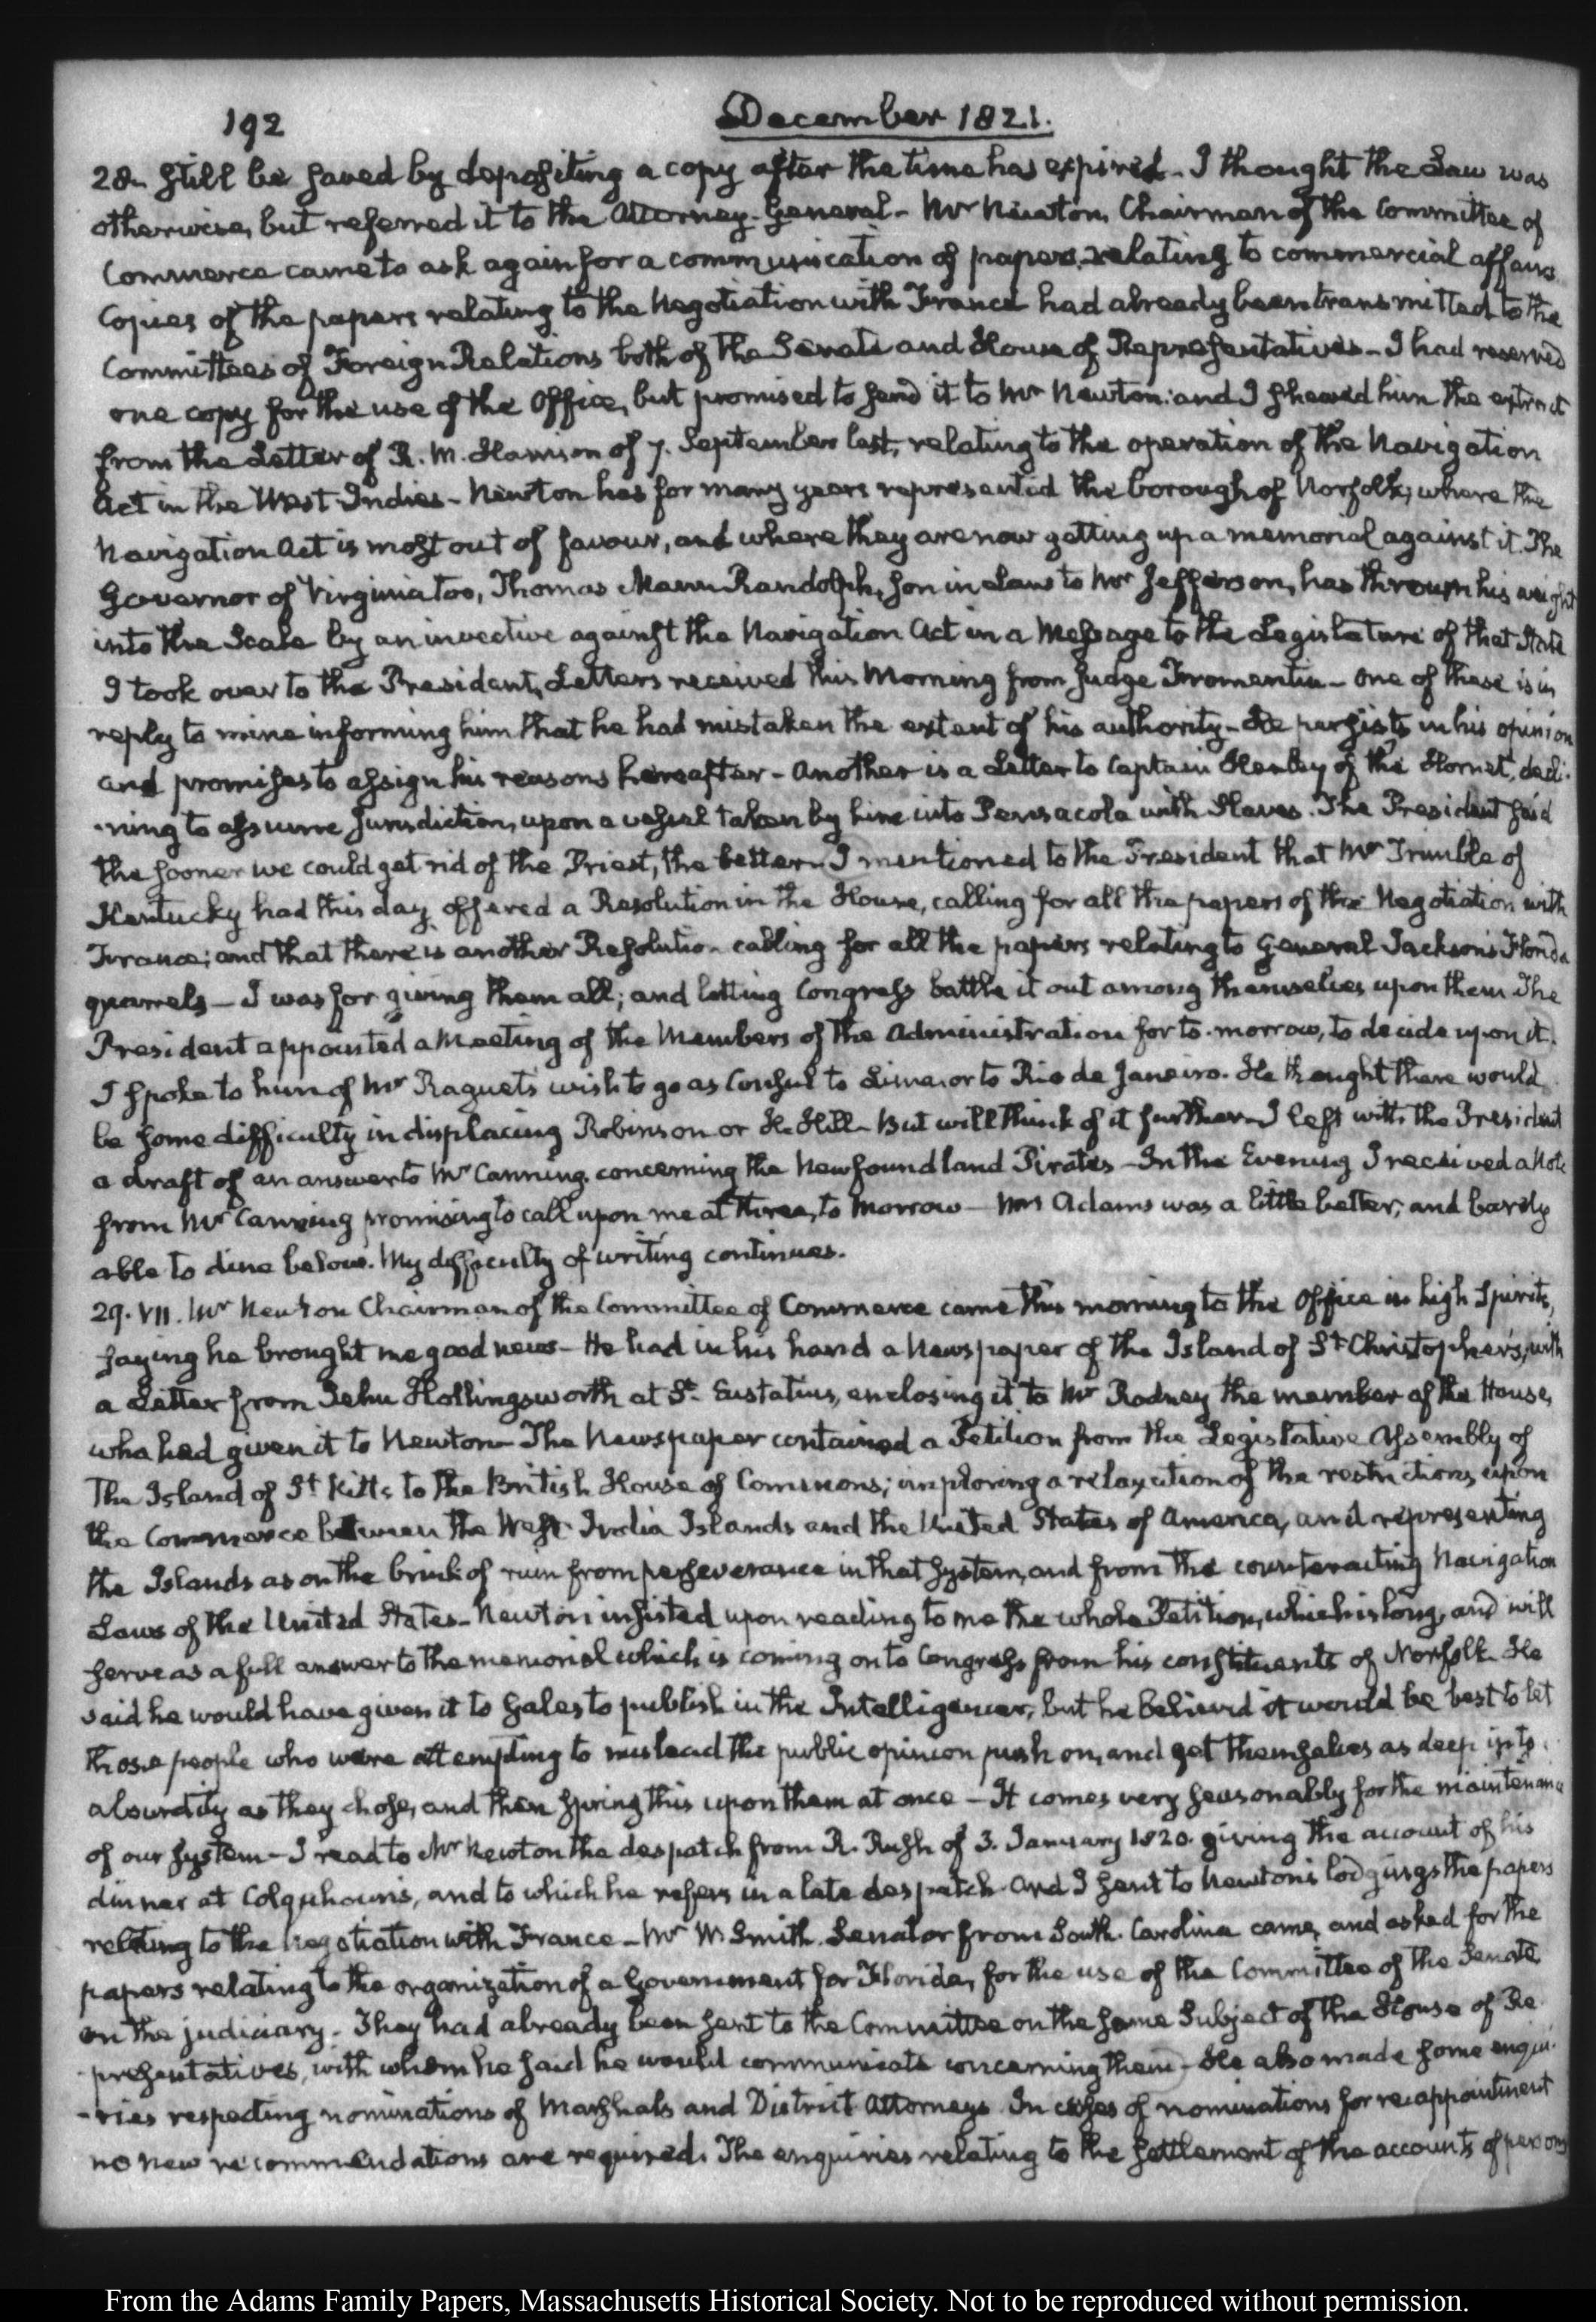 192
December 1821.
28. still be saved by depositing a copy after the time has expired - I thought the Law was
otherwise, but referred it to the Attorney-General - Mr Newton, Chairman of the Committee of
Commerce came to ask again for a communication of papers, relating to commercial affairs
Copies of the papers relating to the Negotiation with France had already been transmitted to the
Committees of Foreign Relations both of the Senate and House of Representatives - I had reserved
one copy for the use of the Office, but promised to send it to Mr Newton: and I shewed him the extract
from the Letter of R. M. Harrison of 7. September last, relating to the operation of the Navigation
Act in the West-Indies - Newton has for many years represented the borough of Norfolk, where the
Navigation Act is most out of favour, and where they are now getting up a memorial against it. The
Governor of Virginia too, Thomas Mann Randolph, son in Law to Mr Jefferson, has thrown his weight
into the Scale by an invective against the Navigation Act in a Message to the Legislature of that State
I took over to the President, Letters received this Morning from Judge Fromentin - one of these is in
reply to mine informing him that he had mistaken the extent of his authority - He persists in his opinion
and promises to assign his reasons hereafter - Another is a Letter to Captain Henley of the Hornet, decli-
-ning to assume Jurisdiction, upon a vessel taken by him into Pensacola with Slaves. The President said
the sooner we could get rid of the Priest, the better - I mentioned to the President that Mr Trimble of
Kentucky had this day offered a Resolution in the House, calling for all the papers of the Negotiation with
France; and that there is another Resolution calling for all the papers relating to General Jackson's Florida
quarrels - I was for giving them all; and letting Congress battle it out among themselves upon them The
President appointed a Meeting of the Members of the Administration for to-morrow, to decide upon it.
I spoke to him of Mr Raguet's wish to go as Consul to Lima or to Rio de Janeiro. He thought there would
be some difficulty in displacing Robinson or H. Hill - But will think of it further - I left with the President
a draft of an answer to Mr Canning, concerning the Newfoundland Pirates - In the Evening I received a Note
from Mr Canning promising to call upon me at three, to Morrow - Mrs Adams was a little better, and barely
able to dine below. My difficulty of writing continues.
29. VII. Mr Newton Chairman of the Committee of Commerce came this morning to the Office in high Spirits,
saying he brought me good news - He had in his hand a Newspaper of the Island of St Christopher's, with
a Letter from Jehu Hollingsworth at St Eustatius, enclosing it to Mr Rodney the member of the House,
who had given it to Newton - The Newspaper contained a Petition from the Legislative Assembly of
The Island of St Kitts to the British House of Commons; imploring a relaxation of the restrictions upon
the Commerce between the West-India Islands and the United States of America, and representing
the Islands as on the brink of ruin from perseverance in that system, and from the counteracting Navigation
Laws of the United States - Newton insisted upon reading to me the whole Petition, which is long, and will
serve as a full answer to the memorial which is coming on to Congress from his constituents of Norfolk - He
said he would have given it to Gales to publish in the Intelligencer, but he believed it would be best to let
those people who were attempting to mislead the public opinion push on, and get themselves as deep into
absurdity as they chose, and then spring this upon them at once - It comes very seasonably for the maintenance
of our system - I read to Mr Newton the despatch from R. Rush of 3. January 1820. giving the account of his
dinner at Colquhoun's, and to which he refers in a late despatch - And I sent to Newton's lodgings the papers
relating to the Negotiation with France - Mr W. Smith. Senator from South-Carolina came, and asked for the
papers relating to the organization of a Government for Florida, for the use of the Committee of the Senate
on the judiciary. They had already been sent to the Committee on the same Subject of the House of Re-
-presentatives, with whom he said he would communicate concerning them - He also made some enqui-
-ries respecting nominations of Marshals and District Attorneys. In cases of nominations for re-appointment
no new recommendations are required. The enquiries relating to the settlement of the accounts of persons
From the Adams Family Papers, Massachusetts Historical Society. Not to be reproduced without permission.